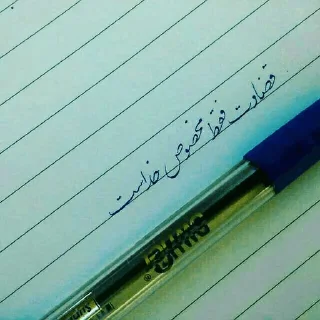 قضاوت فقط مخصوص خداست